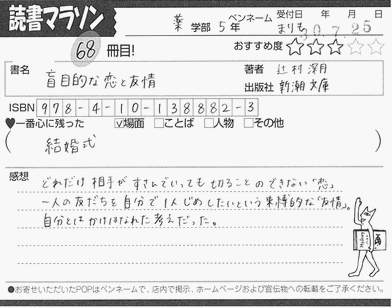 読書マラソン
薬 学部 5年 ペンネーム まりも 受付日 年 月 日
20.7.25
68 冊目! おすすめ度 ☆☆☆☆☆
書名 盲目的な恋と友情
著者 辻村深月
出版社 新潮文庫
ISBN 978-4-10-138882-3
♥一番心に残った ☑場面 □ことば □人物 □その他
(結婚式)
感想
どれだけ相手がすさんでいっても切ることのできない「恋」
一人の友だちを自分で1人じめしたいという束縛的な「友情」。
自分とはかけはなれた考えだった。
●お寄せいただいたPOPはペンネームで、店内で掲示、ホームページおよび宣伝物への転載をご了承ください。